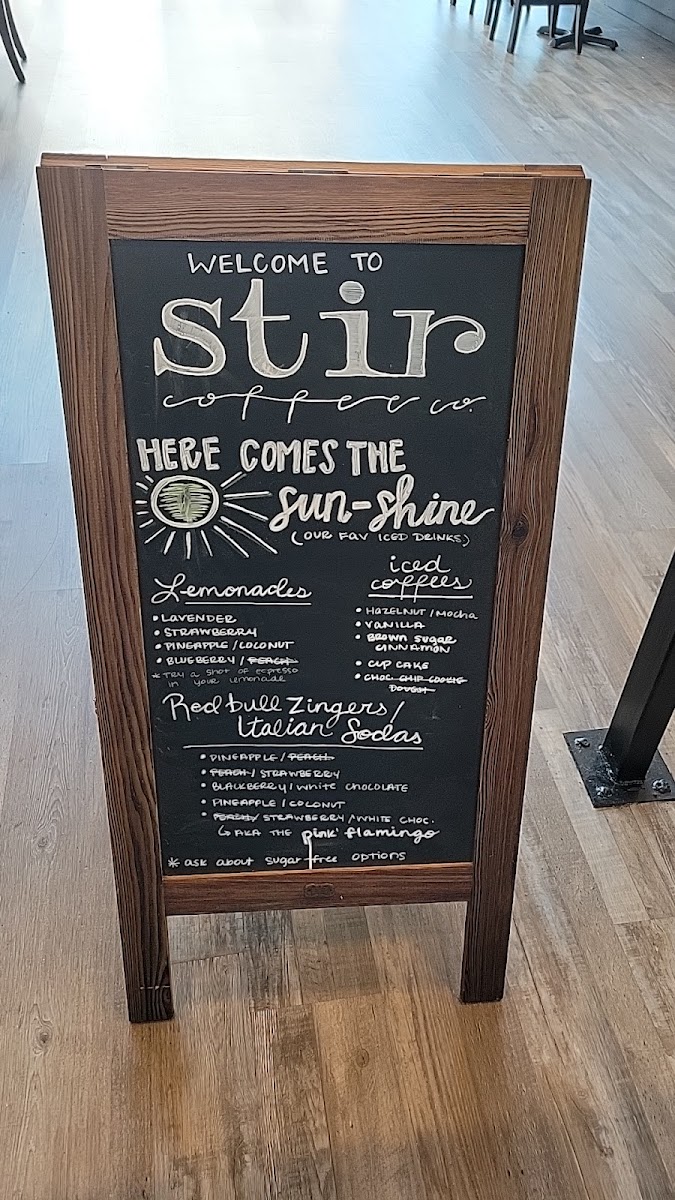 WELCOME TO
stir
coffee co.
HERE COMES THE
sun-shine
(OUR FAV ICED DRINKS)
Lemonades
• LAVENDER
• STRAWBERRY
• PINEAPPLE / COCONUT
• BLUEBERRY / PEACH
* TRY A SHOT OF ESPRESSO
IN YOUR LEMONADE
iced
coffees
• HAZELNUT / MOCHA
• VANILLA
• BROWN SUGAR
CINNAMON
• CUP CAKE
• CHOC. CHIP COOKIE
DOUGH
Redbull Zingers /
Italian Sodas
• PINEAPPLE / PEACH
• PEACH / STRAWBERRY
• BLACKBERRY / WHITE CHOCOLATE
• PINEAPPLE / COCONUT
• PEACH / STRAWBERRY / WHITE CHOC.
↳ AKA THE pink flamingo
* ask about sugar free options